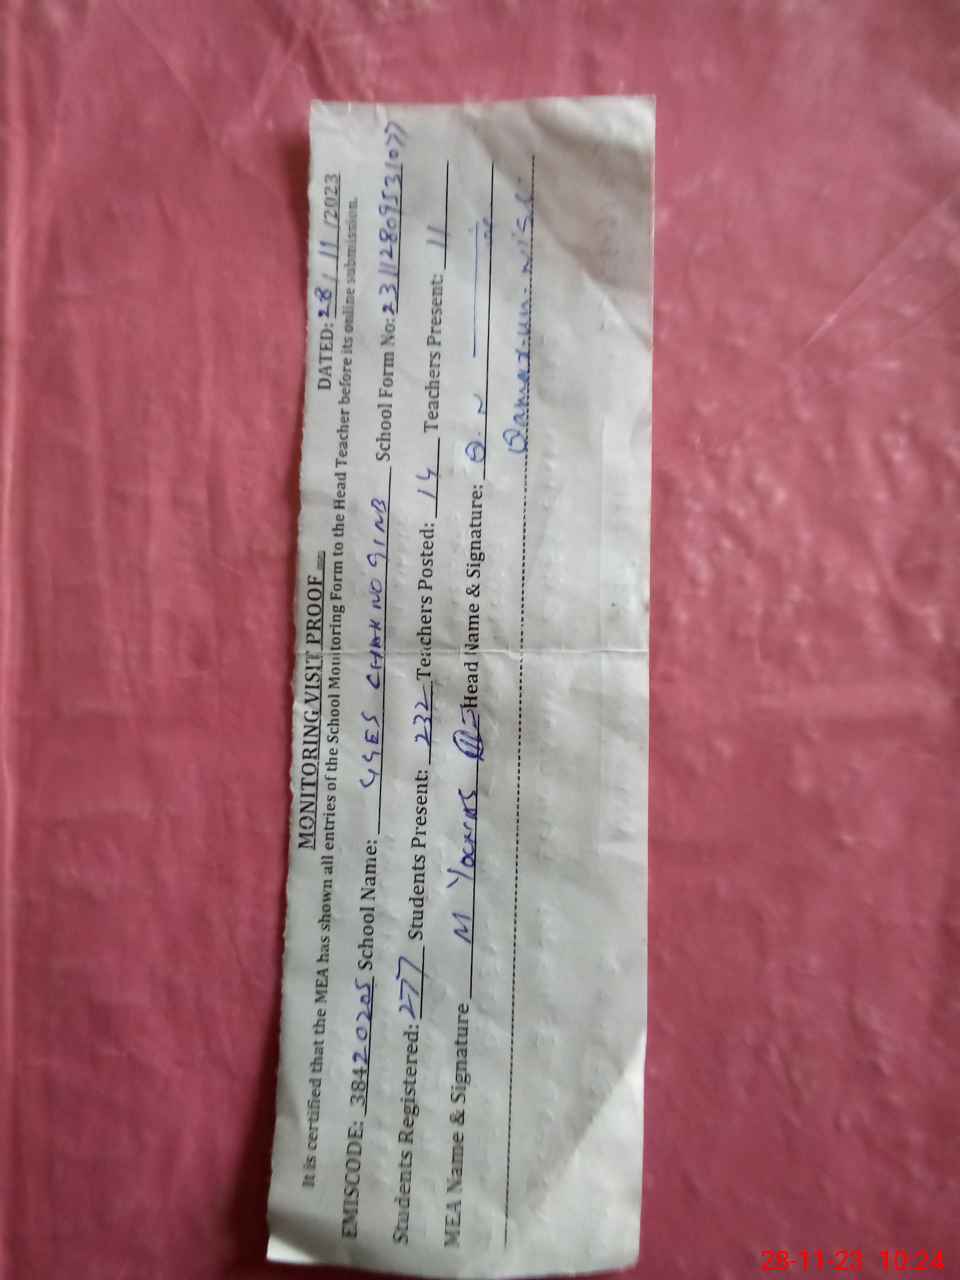 MONITORING VISIT PROOF
DATED: 28/11/2023
It is certified that the MEA has shown all entries of the School Monitoring Form to the Head Teacher before its online submission.
EMISCODE: 38420205 School Name: GGES CHAK NO 91NB School Form No: 23112809531077
Students Registered: 277 Students Present: 232 Teachers Posted: 14 Teachers Present: 11
MEA Name & Signature M Head Name & Signature: Q. N
Qamar-un-nisa
28-11-23 10:24